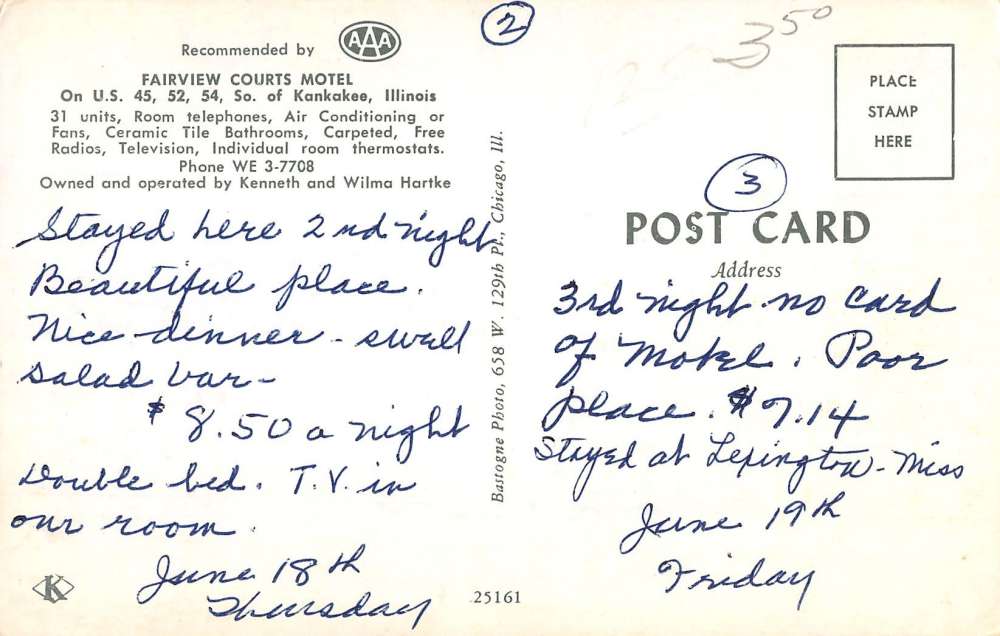 2
Recommended by AAA
FAIRVIEW COURTS MOTEL
On U.S. 45, 52, 54, So. of Kankakee, Illinois
31 units, Room telephones, Air Conditioning or
Fans, Ceramic Tile Bathrooms, Carpeted, Free
Radios, Television, Individual room thermostats.
Phone WE 3-7708
Owned and operated by Kenneth and Wilma Hartke
Stayed here 2nd night
Beautiful place.
Nice dinner - swell
salad bar -
$8.50 a night
Double bed. T.V. in
our room.
June 18th
Thursday
K
Bastogne Photo, 658 W. 129th Pl., Chicago, Ill.
25161
350
PLACE
STAMP
HERE
3
POST CARD
Address
3rd night no card
of Motel. Poor
place. $7.14
Stayed at Lexington - Miss
June 19th
Friday